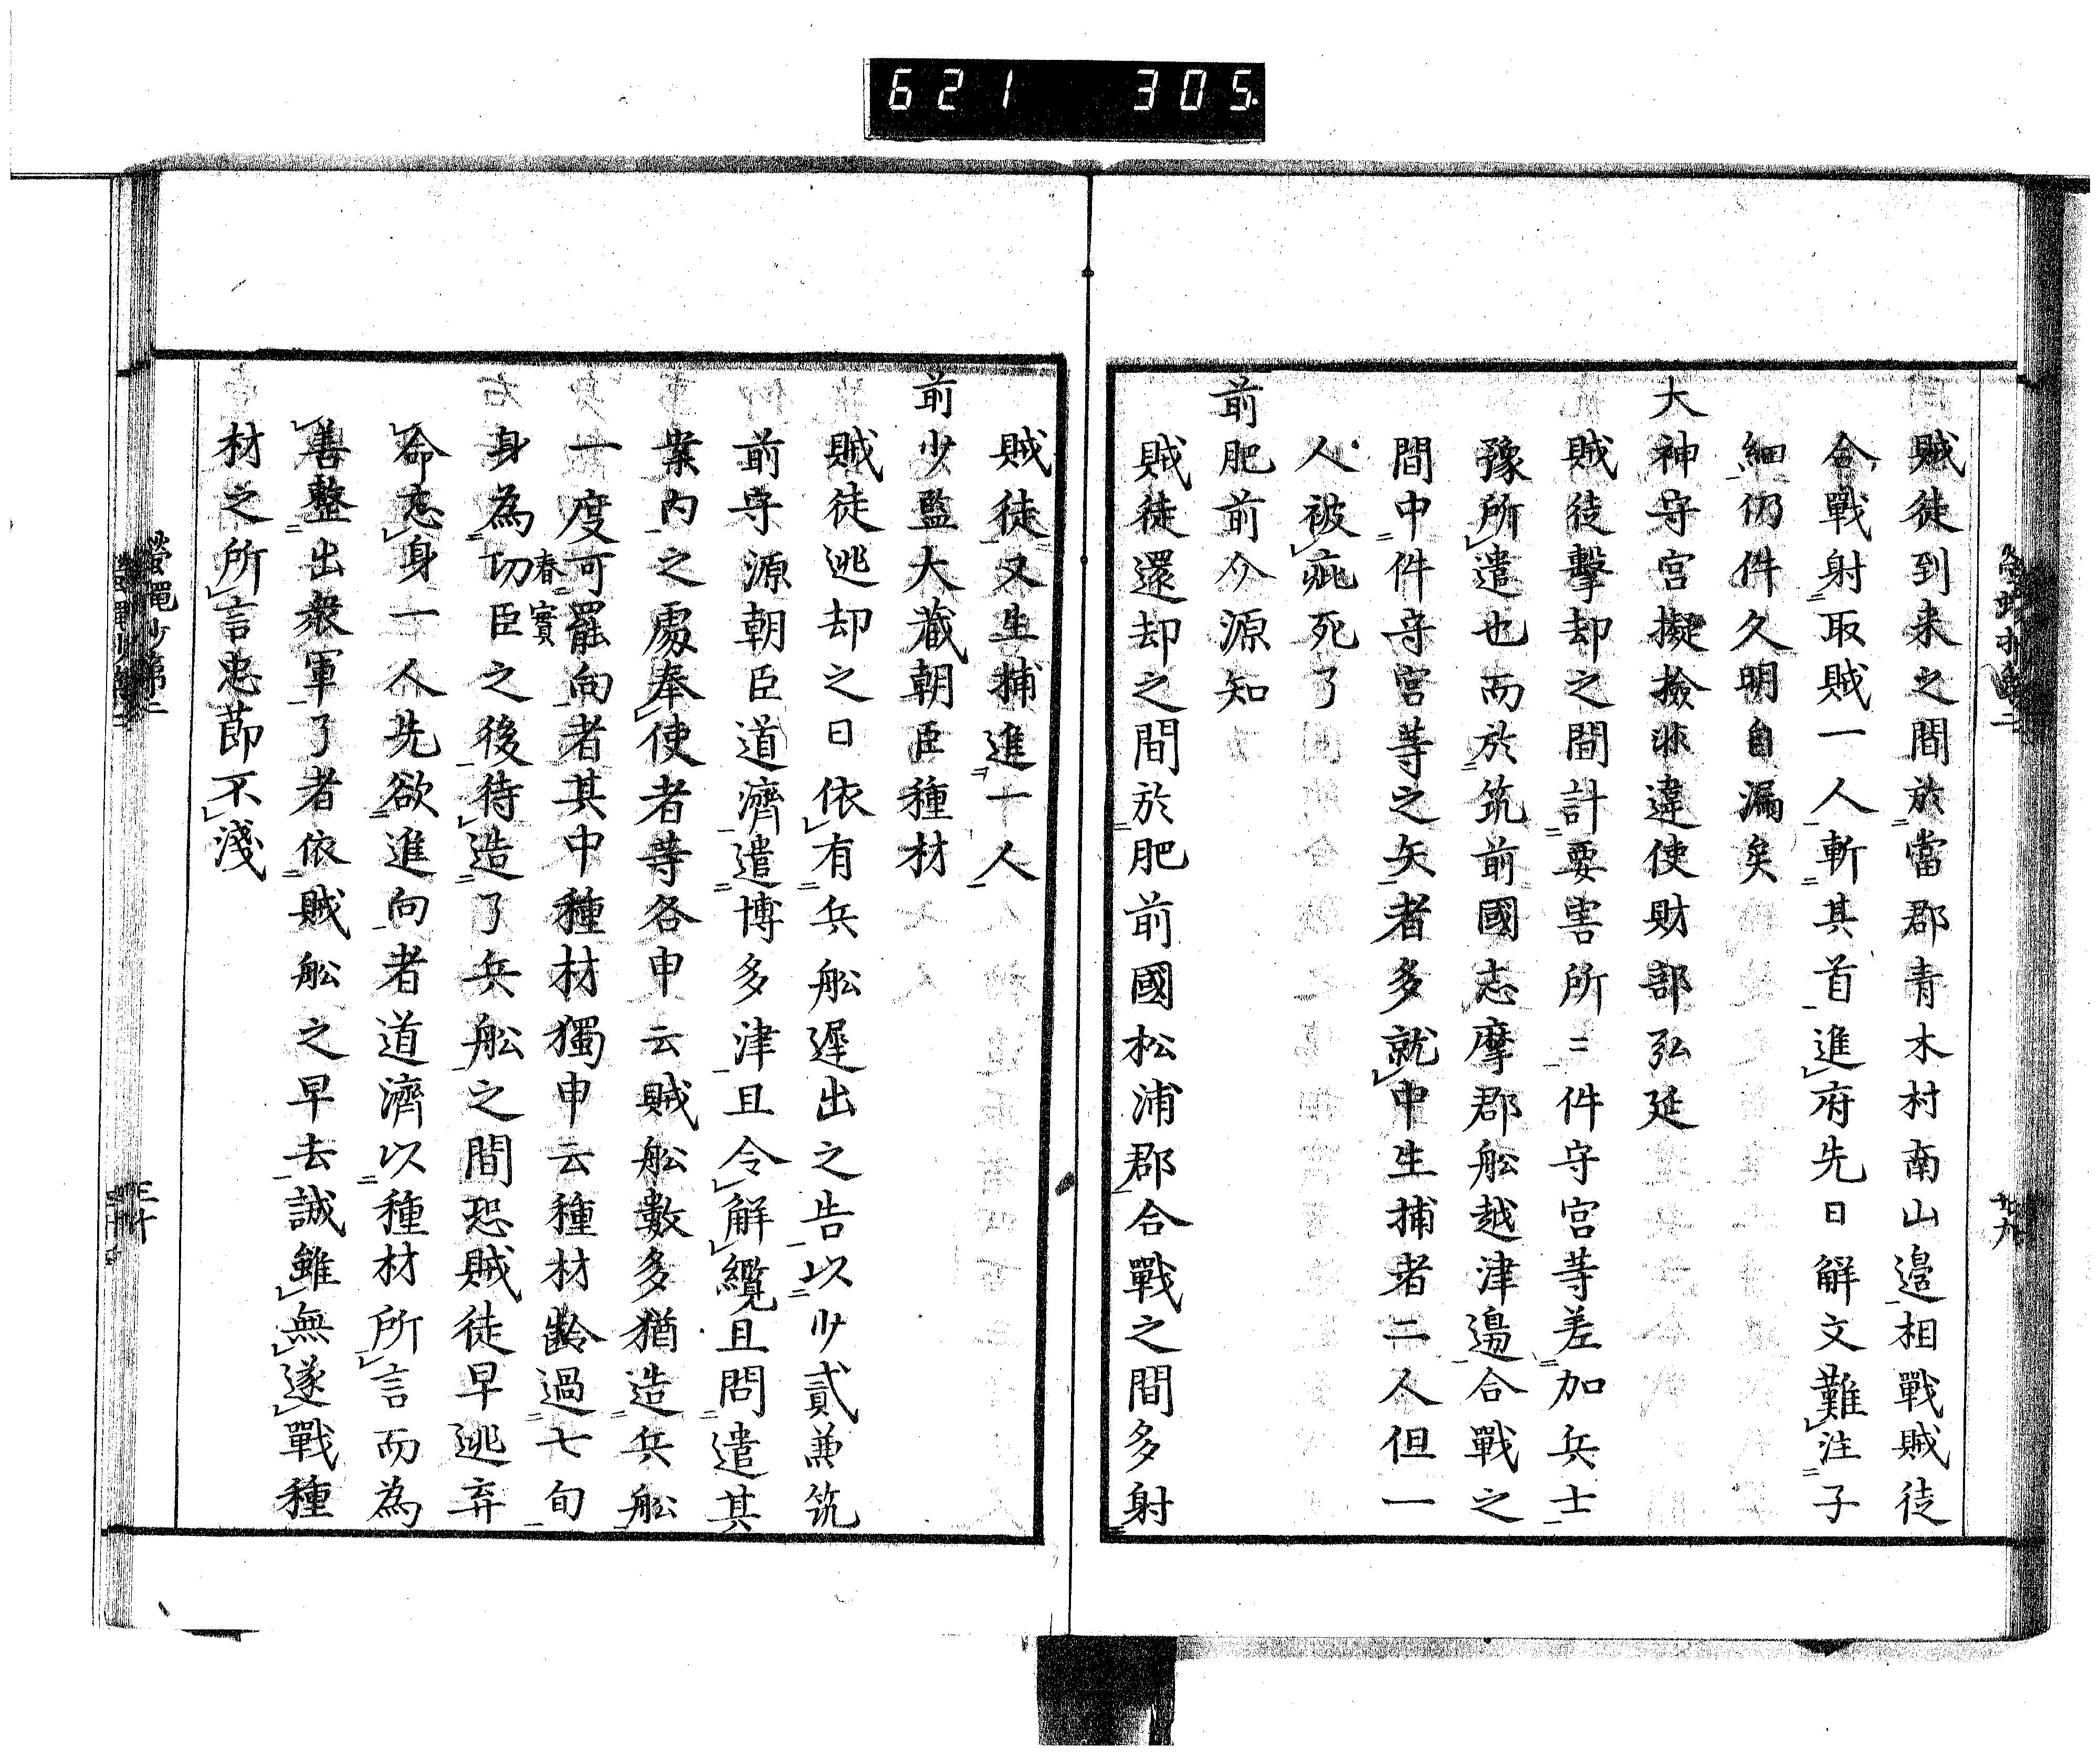 621 305
賊徒到来之間於當郡青木村南山邉相戰賊徒
合戰射取賊一人斬其首進府先日解文難注子
細仍件久明自漏矣
大神守宮擬撿非違使財部弘延
賊徒擊却之間計要害所〻件守宮等差加兵士
豫所遣也而於筑前國志摩郡舩越津邉合戰之
間中件守宮等之矢者多就中生捕者二人但一
人被疵死了
前肥前介源知
賊徒還却之間於肥前國松浦郡合戰之間多射
賊徒又生捕進一人
前少監大蔵朝臣種材
賊徒逃却之日依有兵舩遅出之告以少貳兼筑
前守源朝臣道濟遣博多津且令解纜且問遣其
案内之處奉使者等各申云賊舩數多猶造兵舩
一度可罷向者其中種材獨申云種材齡過七旬
身為功臣之後待造了兵舩之間恐賊徒早逃弃
春實
命忘身一人先欲進向者道濟以種材所言而為
善整出衆軍了者依賊舩之早去誠雖無遂戰種
材之所言忠莭不淺
螢蠅抄第二
三十